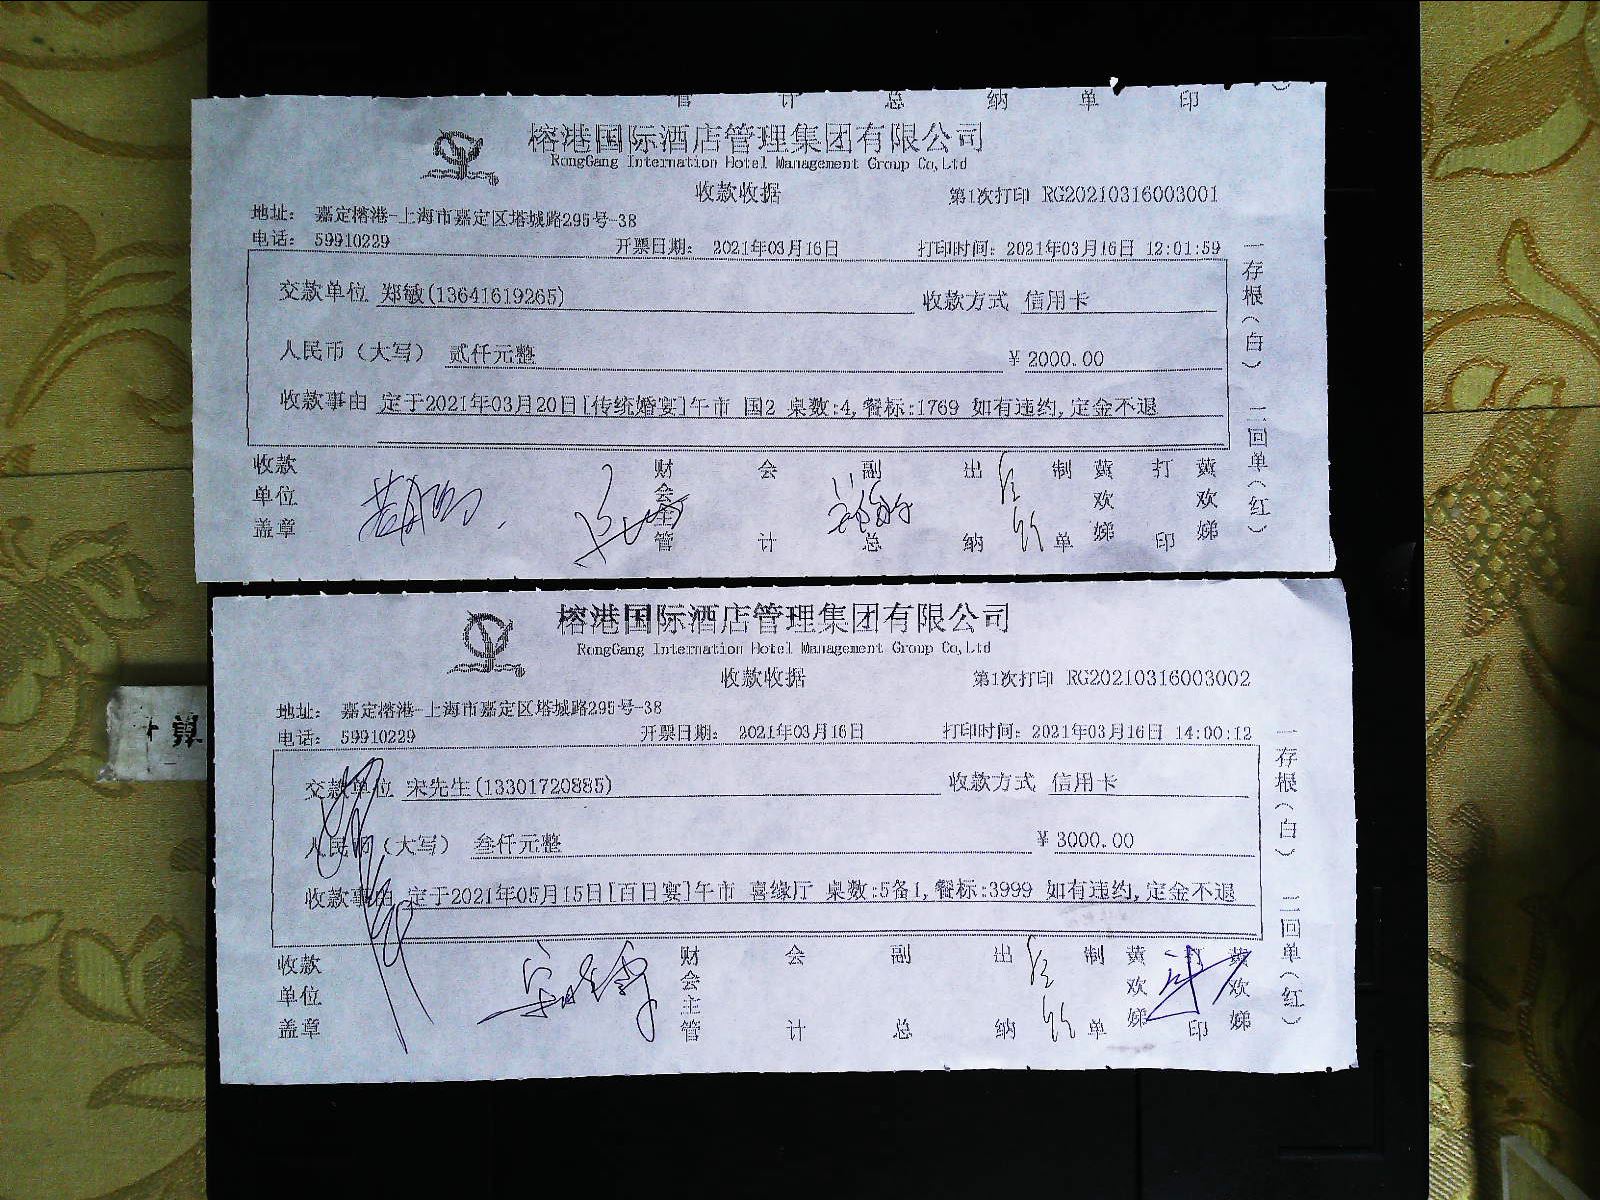 管 计 总 纳 单 印
榕港国际酒店管理集团有限公司
RongGang Internation Hotel Management Group Co,Ltd
收款收据 第1次打印 RG20210316003001
地址: 嘉定榕港-上海市嘉定区塔城路295号-38
电话: 59910229 开票日期: 2021年03月16日 打印时间: 2021年03月16日 12:01:59
交款单位 郑敏(13641619265) 收款方式 信用卡
人民币(大写) 贰仟元整 ¥2000.00
收款事由 定于2021年03月20日[传统婚宴]午市 国2 桌数:4,餐标:1769 如有违约,定金不退
收款单位盖章 财会主管 会计 副总 出纳 制单 黄欢娣 打印 黄欢娣
一存根(白) 二回单(红)
榕港国际酒店管理集团有限公司
RongGang Internation Hotel Management Group Co,Ltd
收款收据 第1次打印 RG20210316003002
地址: 嘉定榕港-上海市嘉定区塔城路295号-38
电话: 59910229 开票日期: 2021年03月16日 打印时间: 2021年03月16日 14:00:12
交款单位 宋先生(13301720885) 收款方式 信用卡
人民币(大写) 叁仟元整 ¥3000.00
收款事由 定于2021年05月15日[百日宴]午市 喜缘厅 桌数:5备1,餐标:3999 如有违约,定金不退
收款单位盖章 财会主管 会计 副总 出纳 制单 黄欢娣 打印 黄欢娣
一存根(白) 二回单(红)